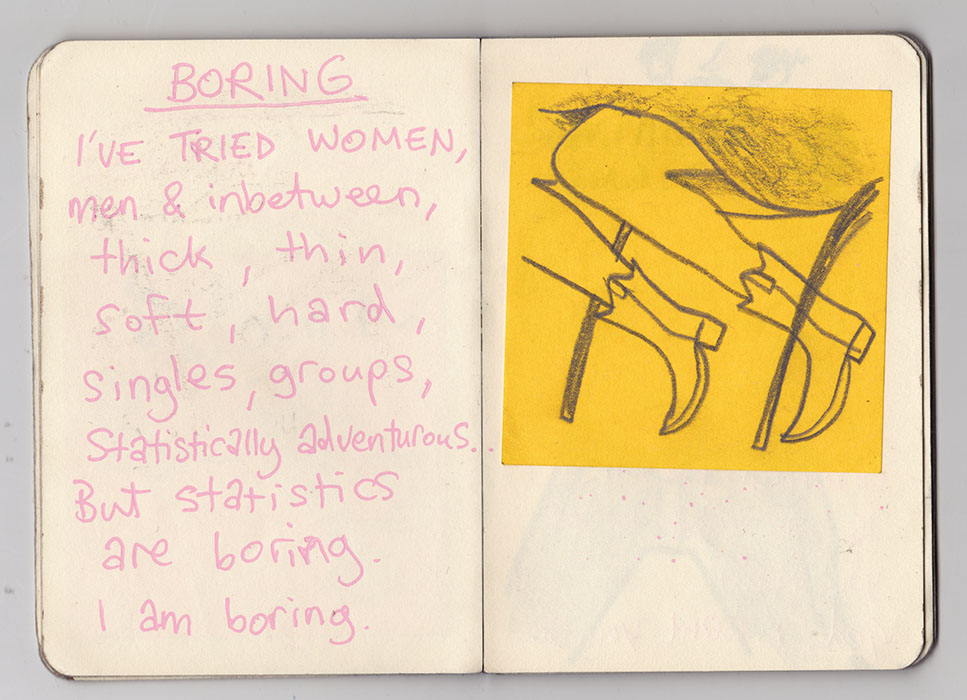 BORING
I'VE TRIED WOMEN,
men & inbetween,
thick, thin,
soft, hard,
singles, groups,
Statistically adventurous...
But statistics
are boring.
I am boring.